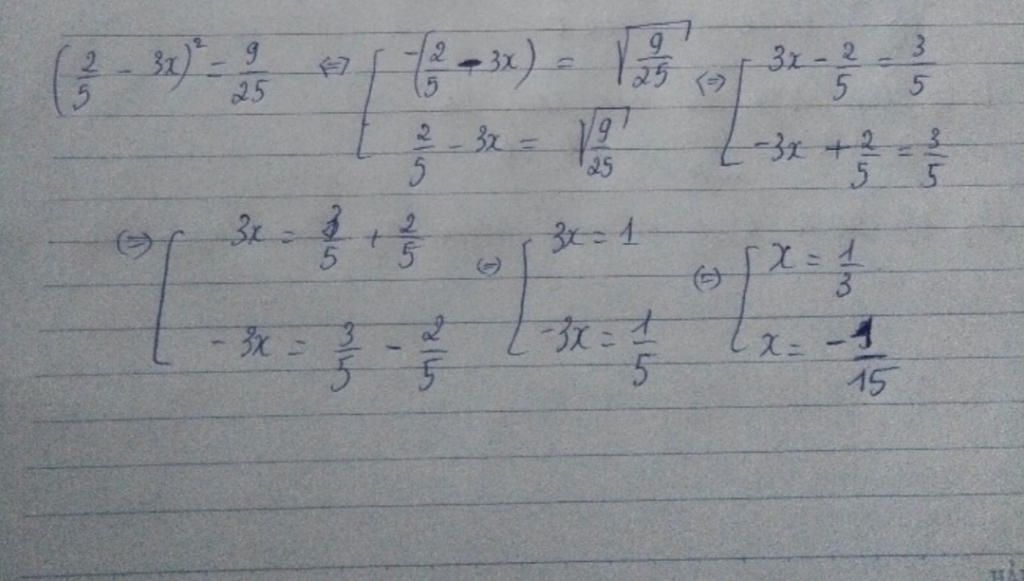 (2/5 - 3x)² = 9/25 <=> [ -(2/5 - 3x) = √(9/25) ; 2/5 - 3x = √(9/25) <=> [ 3x - 2/5 = 3/5 ; -3x + 2/5 = 3/5
<=> [ 3x = 3/5 + 2/5 ; -3x = 3/5 - 2/5 <=> [ 3x = 1 ; -3x = 1/5 <=> [ x = 1/3 ; x = -1/15